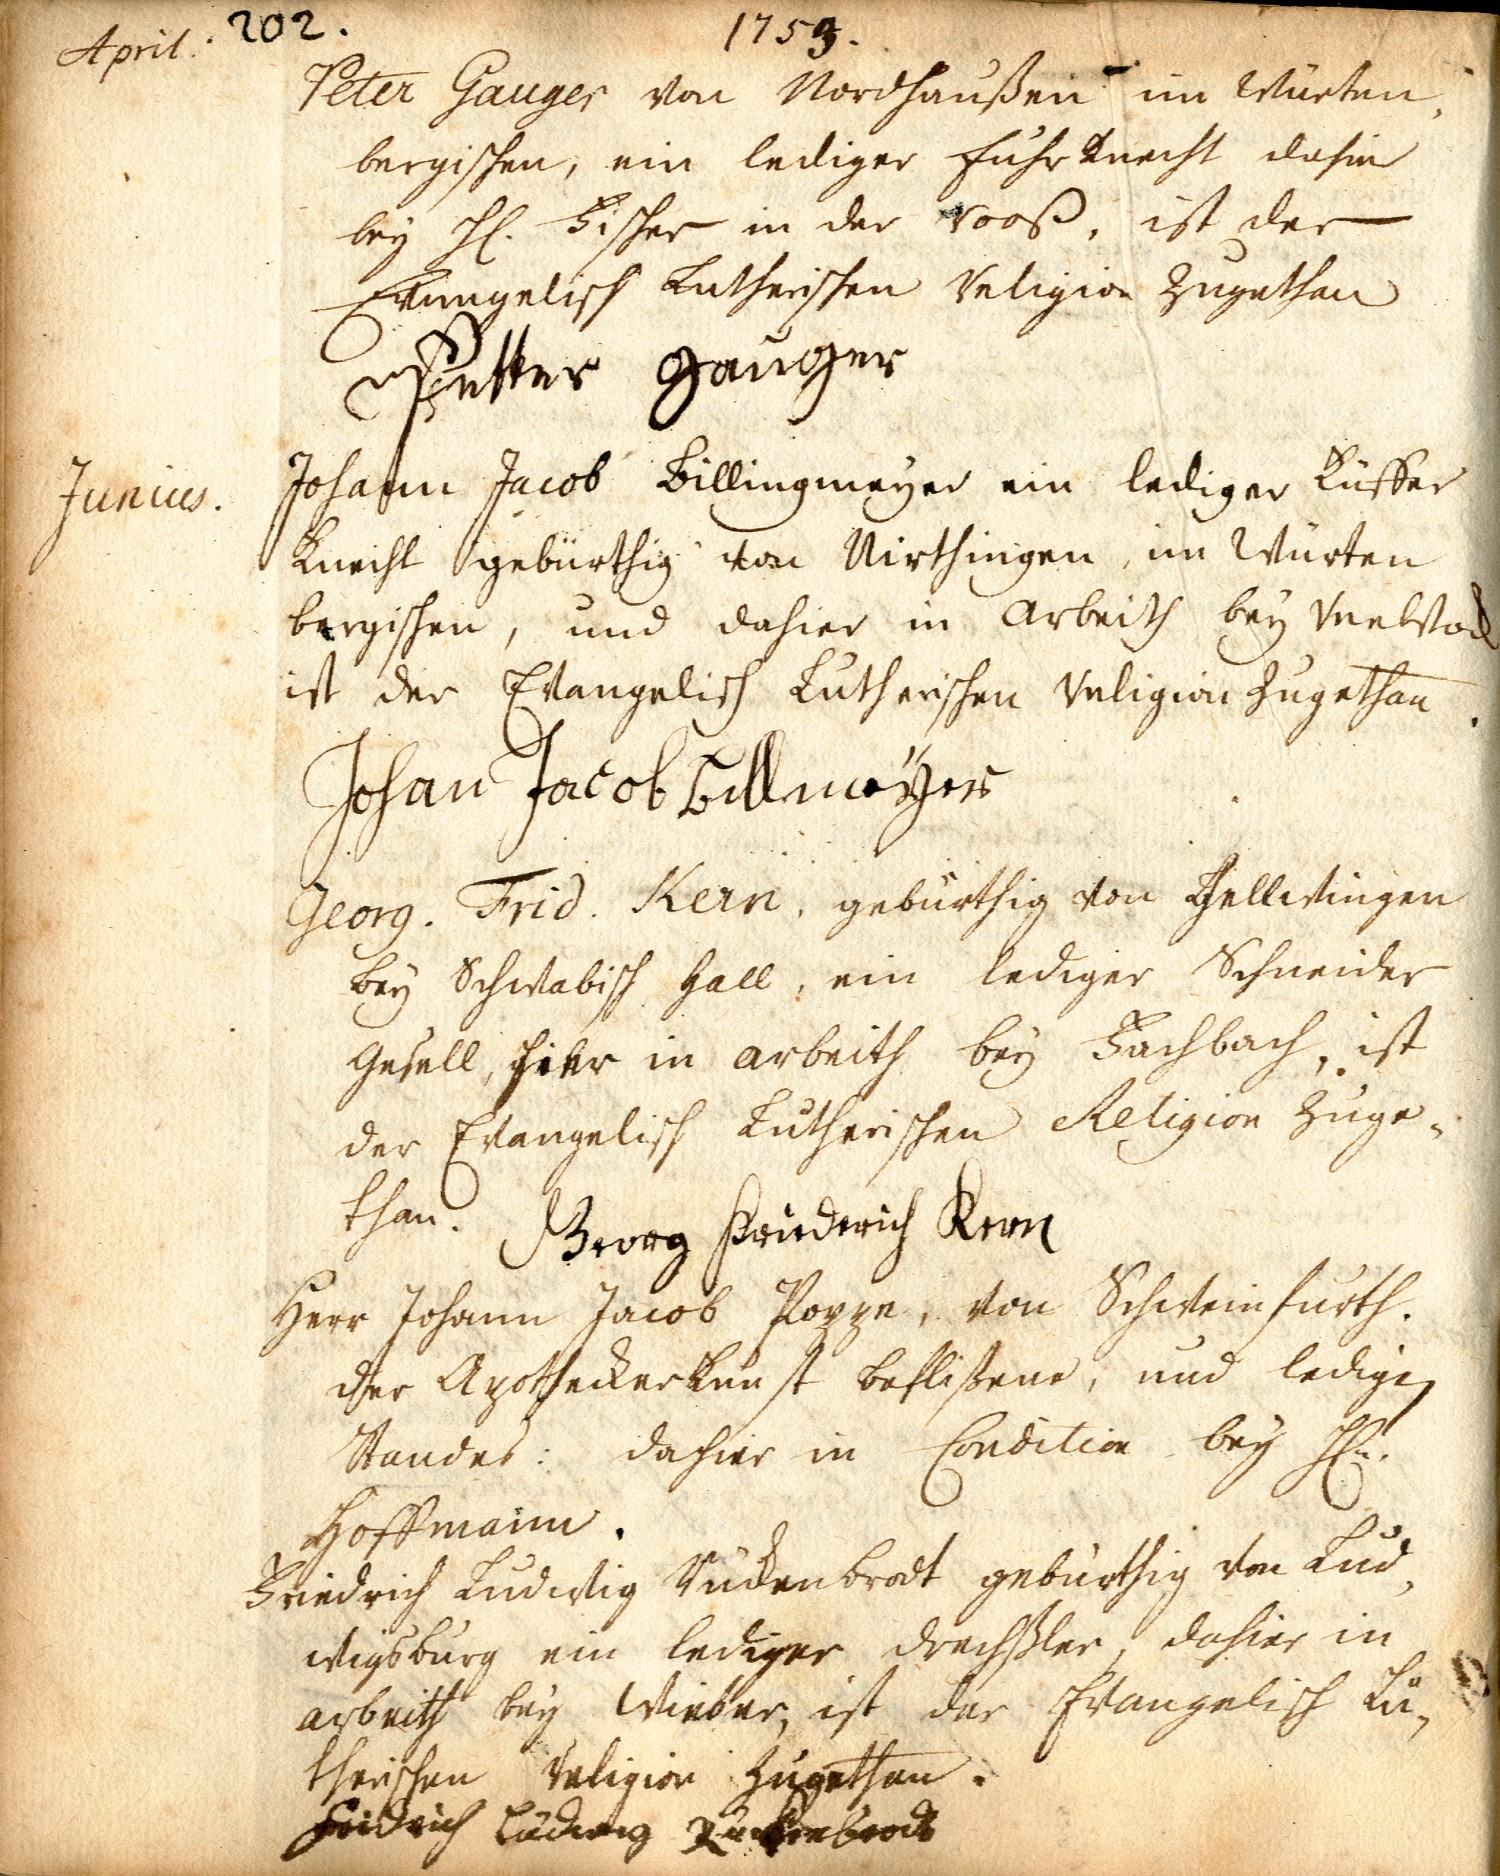 202.
1753.
April.
Peter Gauger von Nordhaußen im Würten,
bergischen, ein lediger Fuhrknecht dahier
bey H. Fischer in der Rooß, ist der
Evangelisch Lutherischen Religion zugethan
Petter Gauger
Junius.
Johann Jacob Billingmeyer ein lediger Küffer
Knecht gebürthig von Nirthingen, im Würten
bergischen, und dahier in Arbeith bey
ist der Evangelisch Lutherischen Religion zugethan.
Johan Jacob Billmeÿer
Georg. Frid. Kern, gebürthig von
bey Schwabisch Hall, ein lediger Schneider
Gesell, hier in arbeith bey Fachbach, ist
der Evangelisch Lutherischen Religion zuge-
than.
Georg Friederich Kern
Herr Johann Jacob Poppe, von Schweinfurth.
der Apotheckerkunst beflißener, und ledigen
Standes: dahier in Condition bey Hn.
Hoffmann.
Friedrich Ludwig Rückenbrodt gebürthig von Lud,
wigsburg ein lediger Drechßler, dahier in
arbeith bey Weber, ist der Evangelisch Lu,
therischen Religion zugethan.
Fridrich Ludwig Rückenbrodt